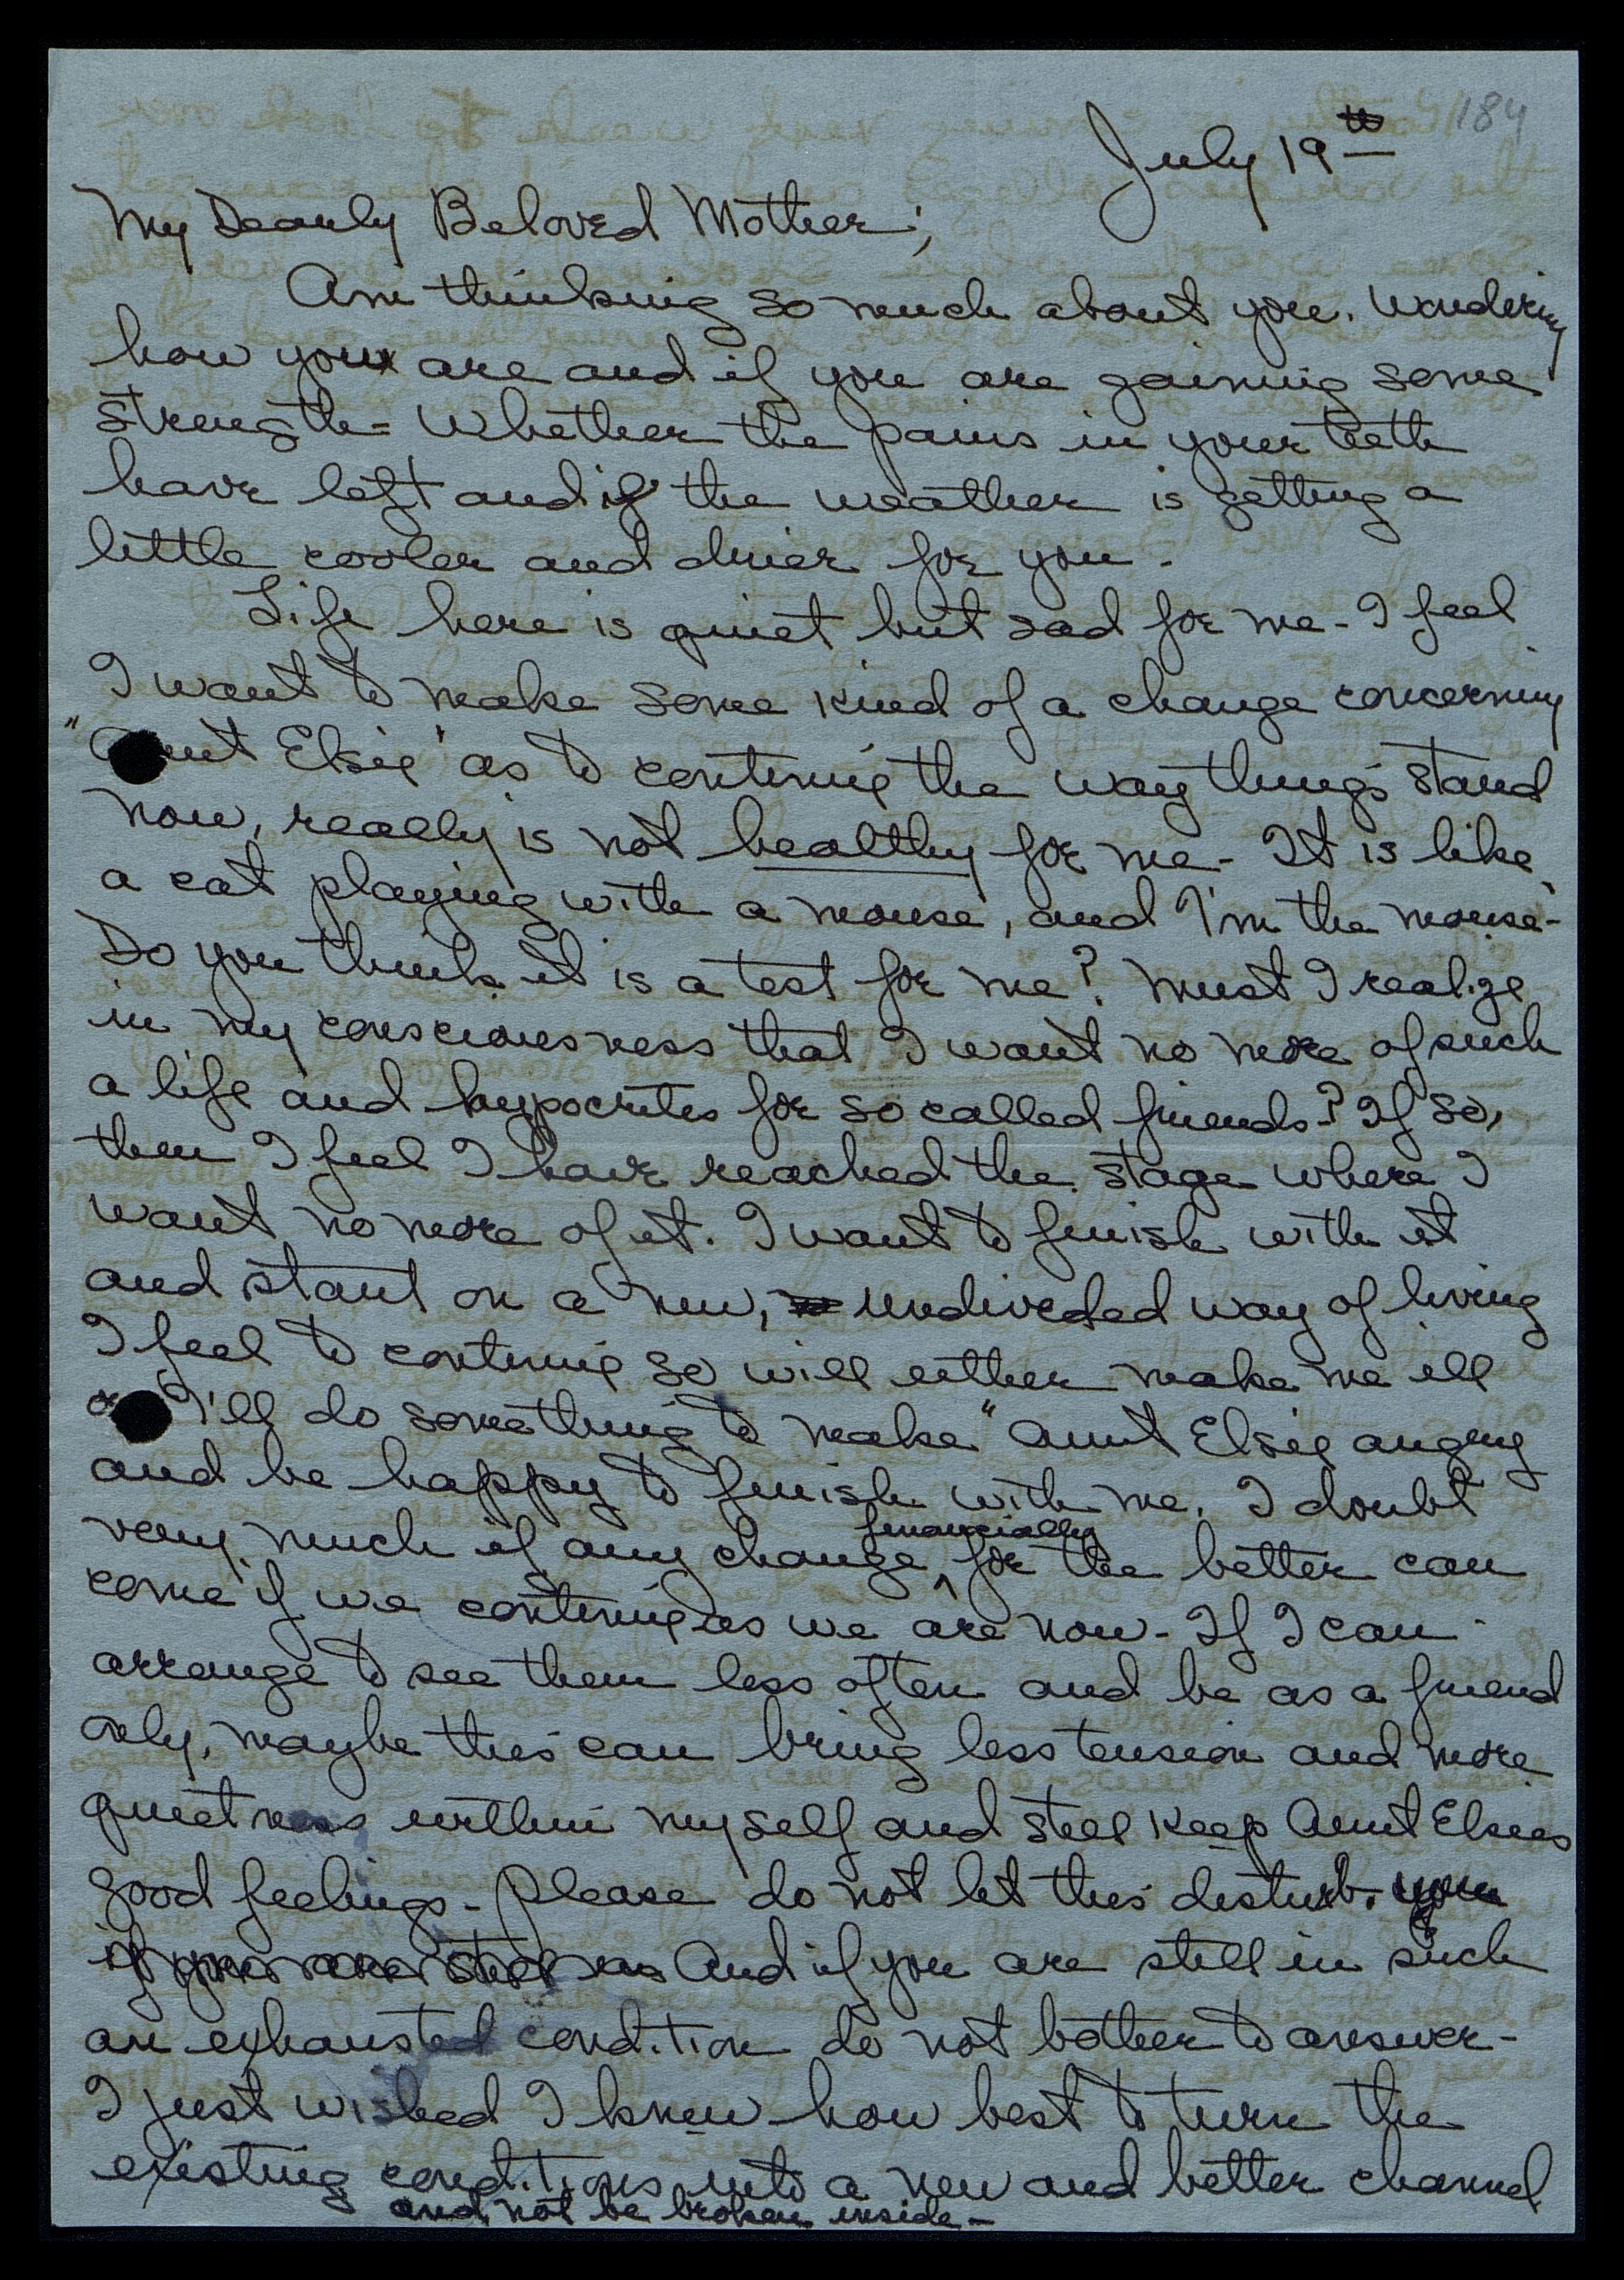 184
July 19th
My Dearly Beloved Mother;
Am thinking so much about you. Wondering
how you are and if you are gaining some
strength - Whether the pains in your teeth
have left and if the weather is getting a
little cooler and drier for you -
Life here is quiet but sad for me - I feel
I want to make some kind of a change concerning
"Aunt Elsie" as to continue the way things stand
now, really is not healthy for me - It is like
a cat playing with a mouse, and I'm the mouse -
Do you think it is a test for me? Must I realize
in my consciousness that I want no more of such
a life and hypocrites for so called friends? If so,
then I feel I have reached the stage where I
want no more of it. I want to finish with it
and start on a new, undivided way of living
I feel to continue so will either make me ill
or I'll do something to make "Aunt Elsie angry
and be happy to finish with me. I doubt
very much if any change financially for the better can
come if we continue as we are now - If I can
arrange to see them less often and be as a friend
only, maybe this can bring less tension and more
quietness within myself and still keep Aunt Elsies
good feelings - Please do not let this disturb you
if you are still in And if you are still in such
an exhausted condition do not bother to answer -
I just wished I knew how best to turn the
existing conditions into a new and better channel
and not be broken inside -